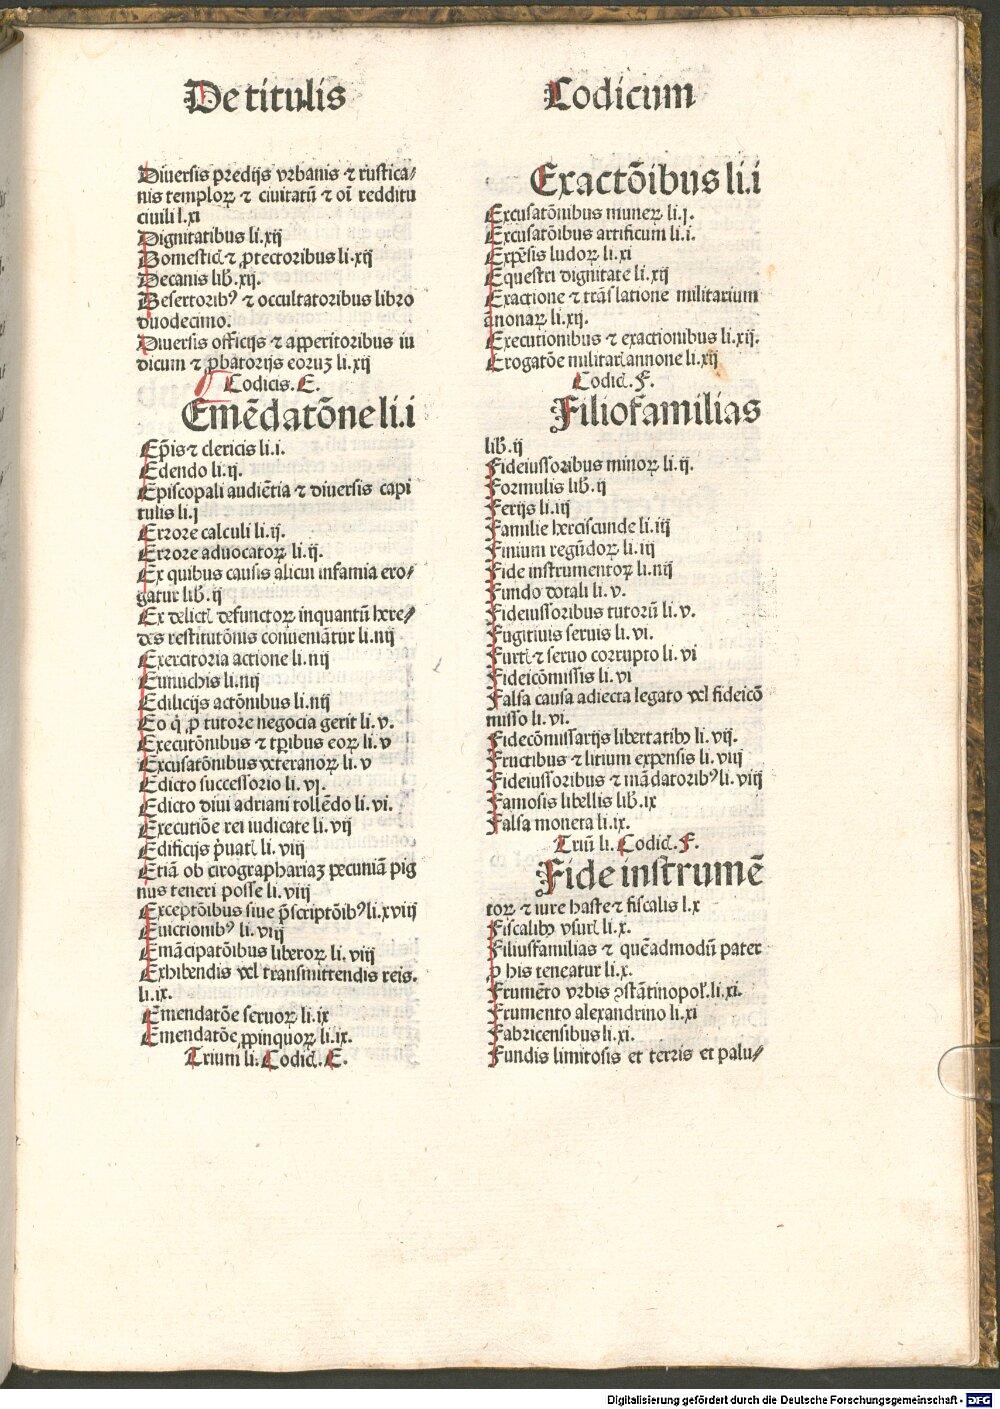 De titulis
Codicum
Diuersis predijs vrbanis ⁊ rustica⸗
nis temploꝝ ⁊ ciuitatũ ⁊ oĩ redditu
ciuili l.xi
Dignitatibus li.xij
Domesticꝭ ⁊ ꝓtectoribus li.xij
Decanis lib̃.xij.
Desertoribꝰ ⁊ occultatoribus libro
duodecimo.
Diuersis officijs ⁊ apperitoribus iu
dicum ⁊ ꝓbatorijs eoruʒ li.xij
Codicis. E.
Emẽdatõne li.i
Ep̃is ⁊ clericis li.i.
Edendo li.ij.
Episcopali audiẽtia ⁊ diuersis capi
tulis li.j
Errore calculi li.ij.
Errore aduocatoꝝ li.ij.
Ex quibus causis alicui infamia ero⸗
gatur lib̃.ij
Ex delictꝭ defunctoꝝ inquantũ here⸗
des restitutõnis conueniãtur li.iiij
Exercitoria actione li.iiij
Eunuchis li.iiij
Edilicijs actõnibus li.iiij
Eo q̃ ꝓ tutore negocia gerit li.v.
Executõnibus ⁊ tp̃ibus eoꝝ li.v
Excusatõnibus veteranoꝝ li.v
Edicto successorio li.vj.
Edicto diui adriani tollẽdo li.vi.
Executiõe rei iudicate li.vij
Edificijs p̃uatꝭ li.viij
Etiã ob cirographariaʒ pecuniã pig
nus teneri posse li.viij
Exceptõibus siue p̃scriptõibꝰ li.xviij
Euictionibꝰ li.viij
Emãcipatõibus liberoꝝ li.viij
Exhibendis vel transmittendis reis.
li.ix.
Emendatõe seruoꝝ li.ix
Emendatõe ꝓpinquoꝝ li.ix.
Trium li. Codicꝭ. E.
Exactõibus li.i
Excusatõnibus muneꝝ li.j.
Excusatõibus artificum li.i.
Expẽsis ludoꝝ li.xi
Equestri dignitate li.xij
Exactione ⁊ trãslatione militarium
ãnonaꝝ li.xij.
Executionibus ⁊ exactionibus li.xij.
Erogatõe militarꝭ annone li.xij
Codicꝭ. F.
Filiofamilias
lib̃.ij
Fideiussoribus minoꝝ li.ij.
Formulis lib̃.ij
Ferijs li.iij
Familie herciscunde li.iij
Finium regũdoꝝ li.iij
Fide instrumentoꝝ li.iiij
Fundo dotali li.v.
Fideiussoribus tutorũ li.v.
Fugitiuis seruis li.vi.
Furtꝭ ⁊ seruo corrupto li.vi
Fideicõmissis li.vi
Falsa causa adiecta legato vel fideicõ
misso li.vi.
Fidecõmissarijs libertatibꝫ li.vij.
Fructibus ⁊ litium expensis li.viij
Fideiussoribus ⁊ mãdatoribꝰ li.viij
Famosis libellis lib̃.ix
Falsa moneta li.ix.
Triũ li. Codicꝭ. F.
Fide instrumẽ
toꝝ ⁊ iure haste ⁊ fiscalis l.x
Fiscalibꝫ vsurꝭ li.x.
Filiusfamilias ⁊ quẽadmodũ pater
ꝓ his teneatur li.x.
Frumẽto vrbis ꝯstãtinopol̃.li.xi.
Frumento alexandrino li.xi
Fabricensibus li.xi.
Fundis limitosis et terris et palu⸗
Digitalisierung gefördert durch die Deutsche Forschungsgemeinschaft - DFG